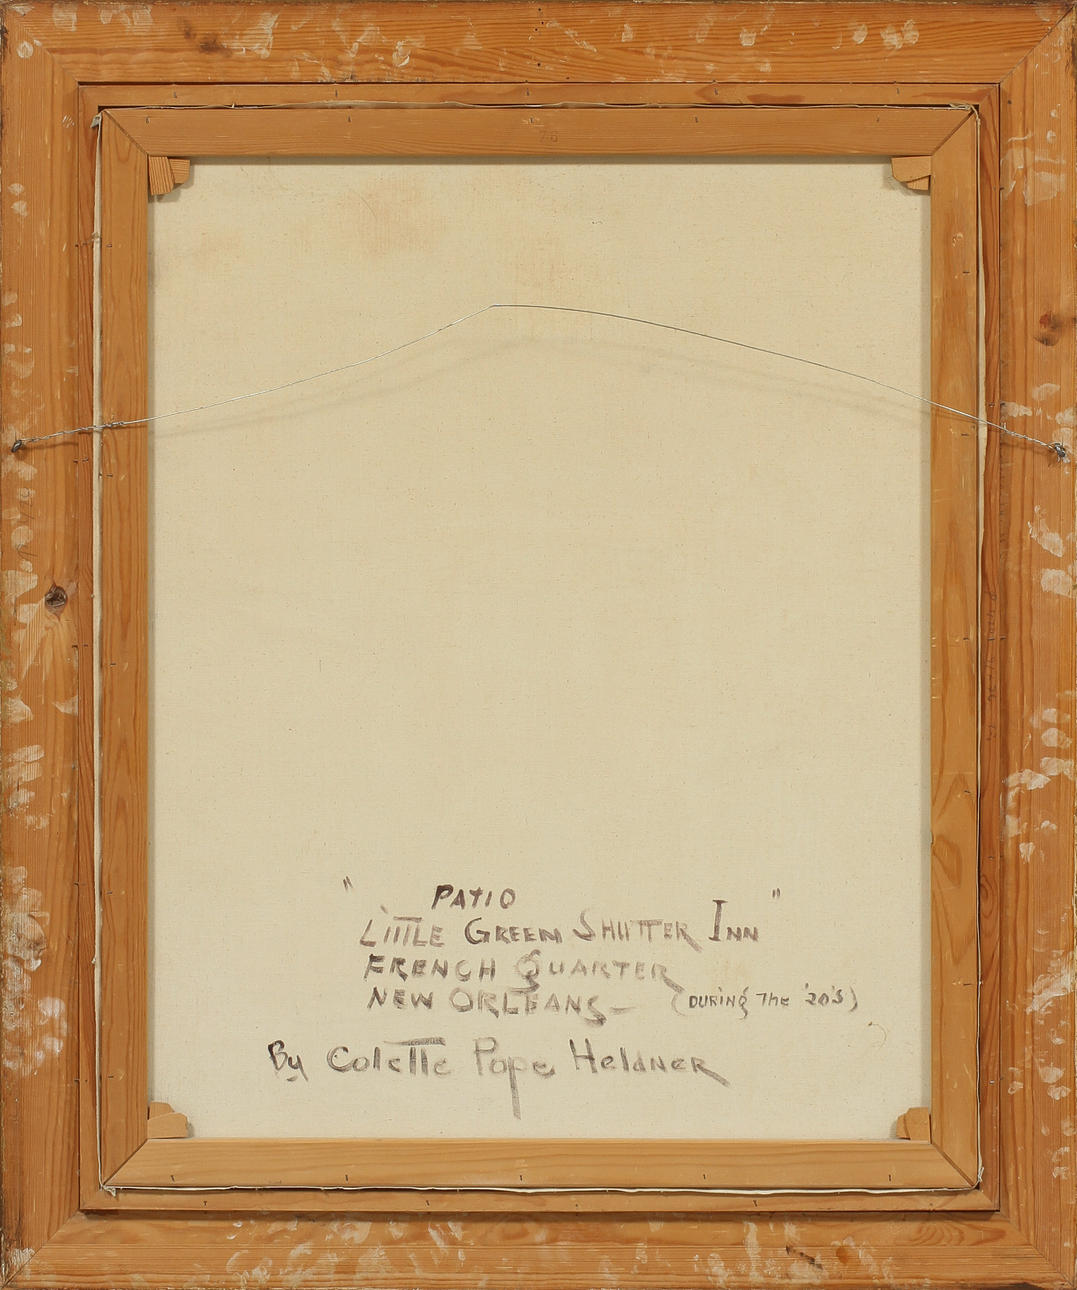 " PATIO "
LITTLE GREEN SHUTTER INN
FRENCH QUARTER
NEW ORLEANS – (DURING The '20'S)
By Colette Pope Heldner